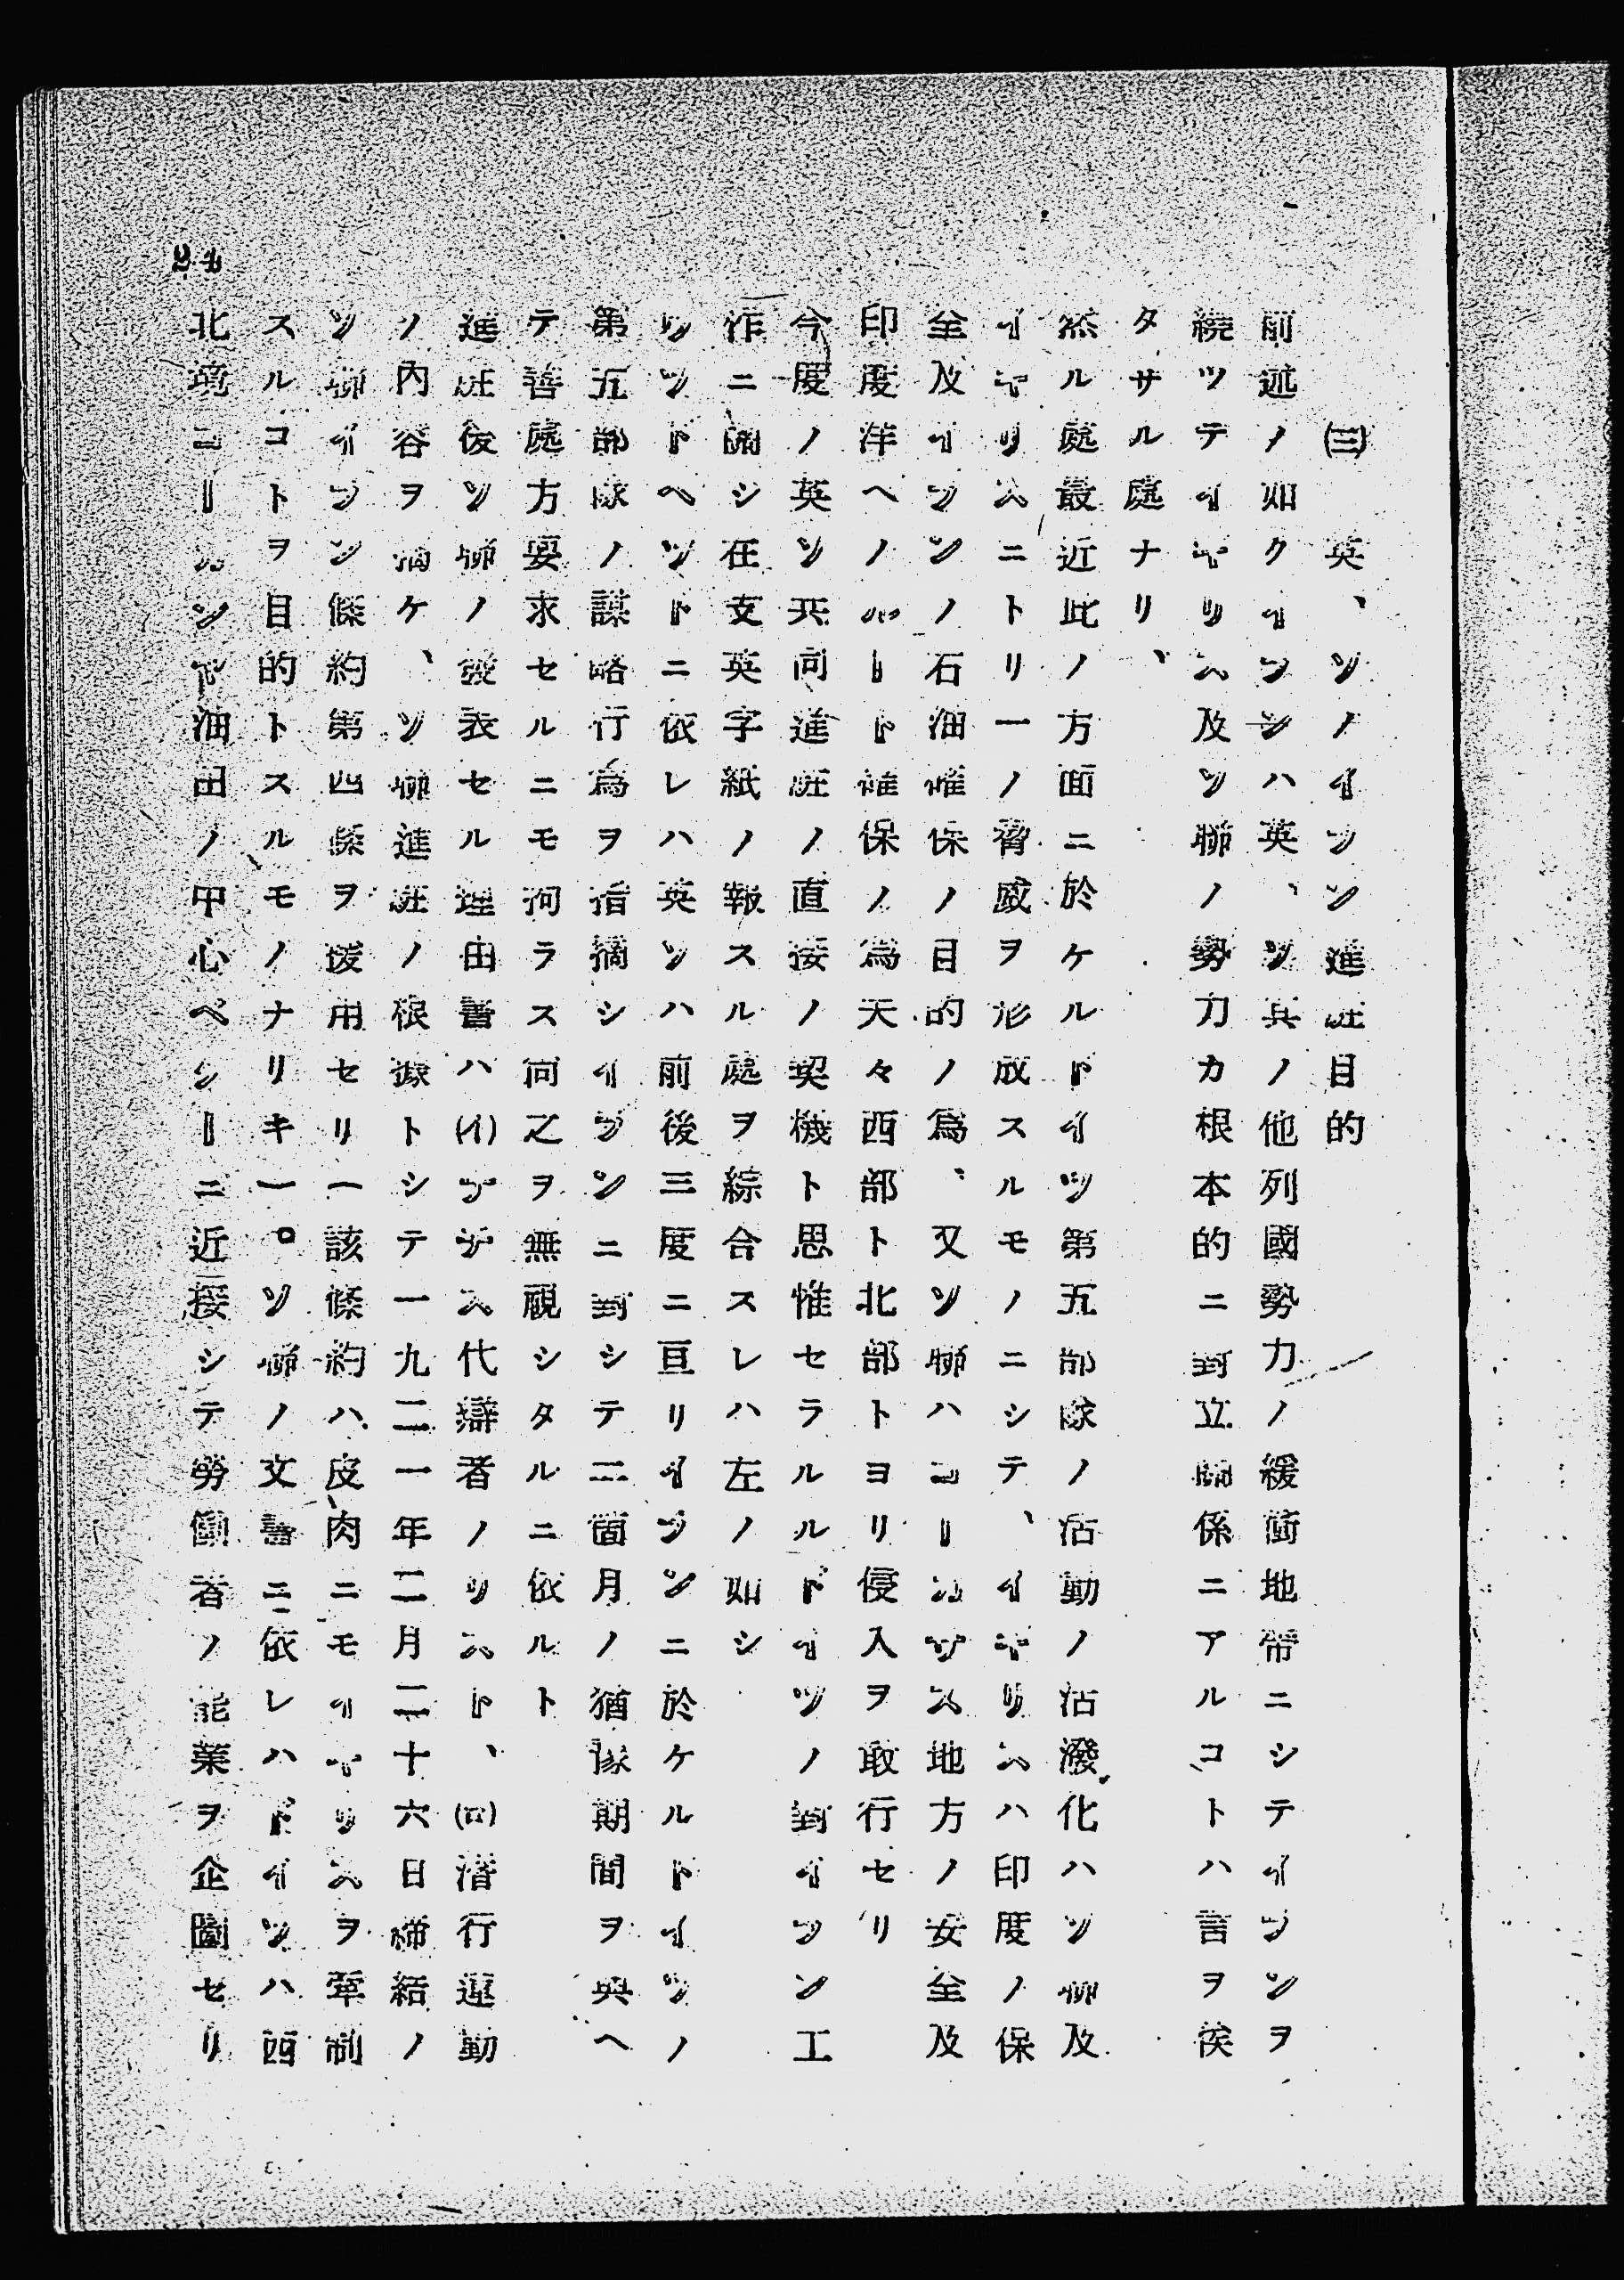 ㈢　英、ソノイラン進駐目的
前述ノ如クイランハ英、ソ共ノ他列國勢力ノ緩衝地帶ニシテイランヲ
繞ツテイギリス及ソ聯ノ勢力カ根本的ニ對立關係ニアルコトハ言ヲ俟
タサル處ナリ、
然ル處最近此ノ方面ニ於ケルドイツ第五部隊ノ活動ノ活潑化ハソ聯及
イギリスニトリ一ノ脅威ヲ形成スルモノニシテ、イギリスハ印度ノ保
全及イランノ石油確保ノ目的ノ爲、又ソ聯ハコーカサス地方ノ安全及
印度洋ヘノルート確保ノ爲夫々西部ト北部トヨリ侵入ヲ取行セリ
今度ノ英ソ共同進駐ノ直接ノ契機ト思惟セラルルドイツノ對イラン工
作ニ關シ在支英字紙ノ報スル處ヲ綜合スレハ左ノ如シ
ツソトヘツトニ依レハ英ソハ前後三度ニ亘リイランニ於ケルドイツノ
第五部隊ノ謀略行爲ヲ指摘シイランニ對シテ二箇月ノ猶豫期間ヲ與ヘ
テ善處方要求セルニモ拘ラス同之ヲ無視シタルニ依ルト
進駐後ソ聯ノ發表セル理由書ハ(イ)ナチス代辯者ノリスト、(ロ)潛行運動
ノ內容ヲ摘ケ、ソ聯進駐ノ根據トシテ一九二一年二月二十六日締結ノ
ソ聯イラン條約第四條ヲ援用セリ一該條約ハ皮肉ニモイギリスヲ牽制
スルコトヲ目的トスルモノナリキ一。ソ聯ノ文書ニ依レハドイツハ西
北境ニールンド油田ノ中心ベシーニ近接シテ勞働者ノ罷業ヲ企圖セリ
24